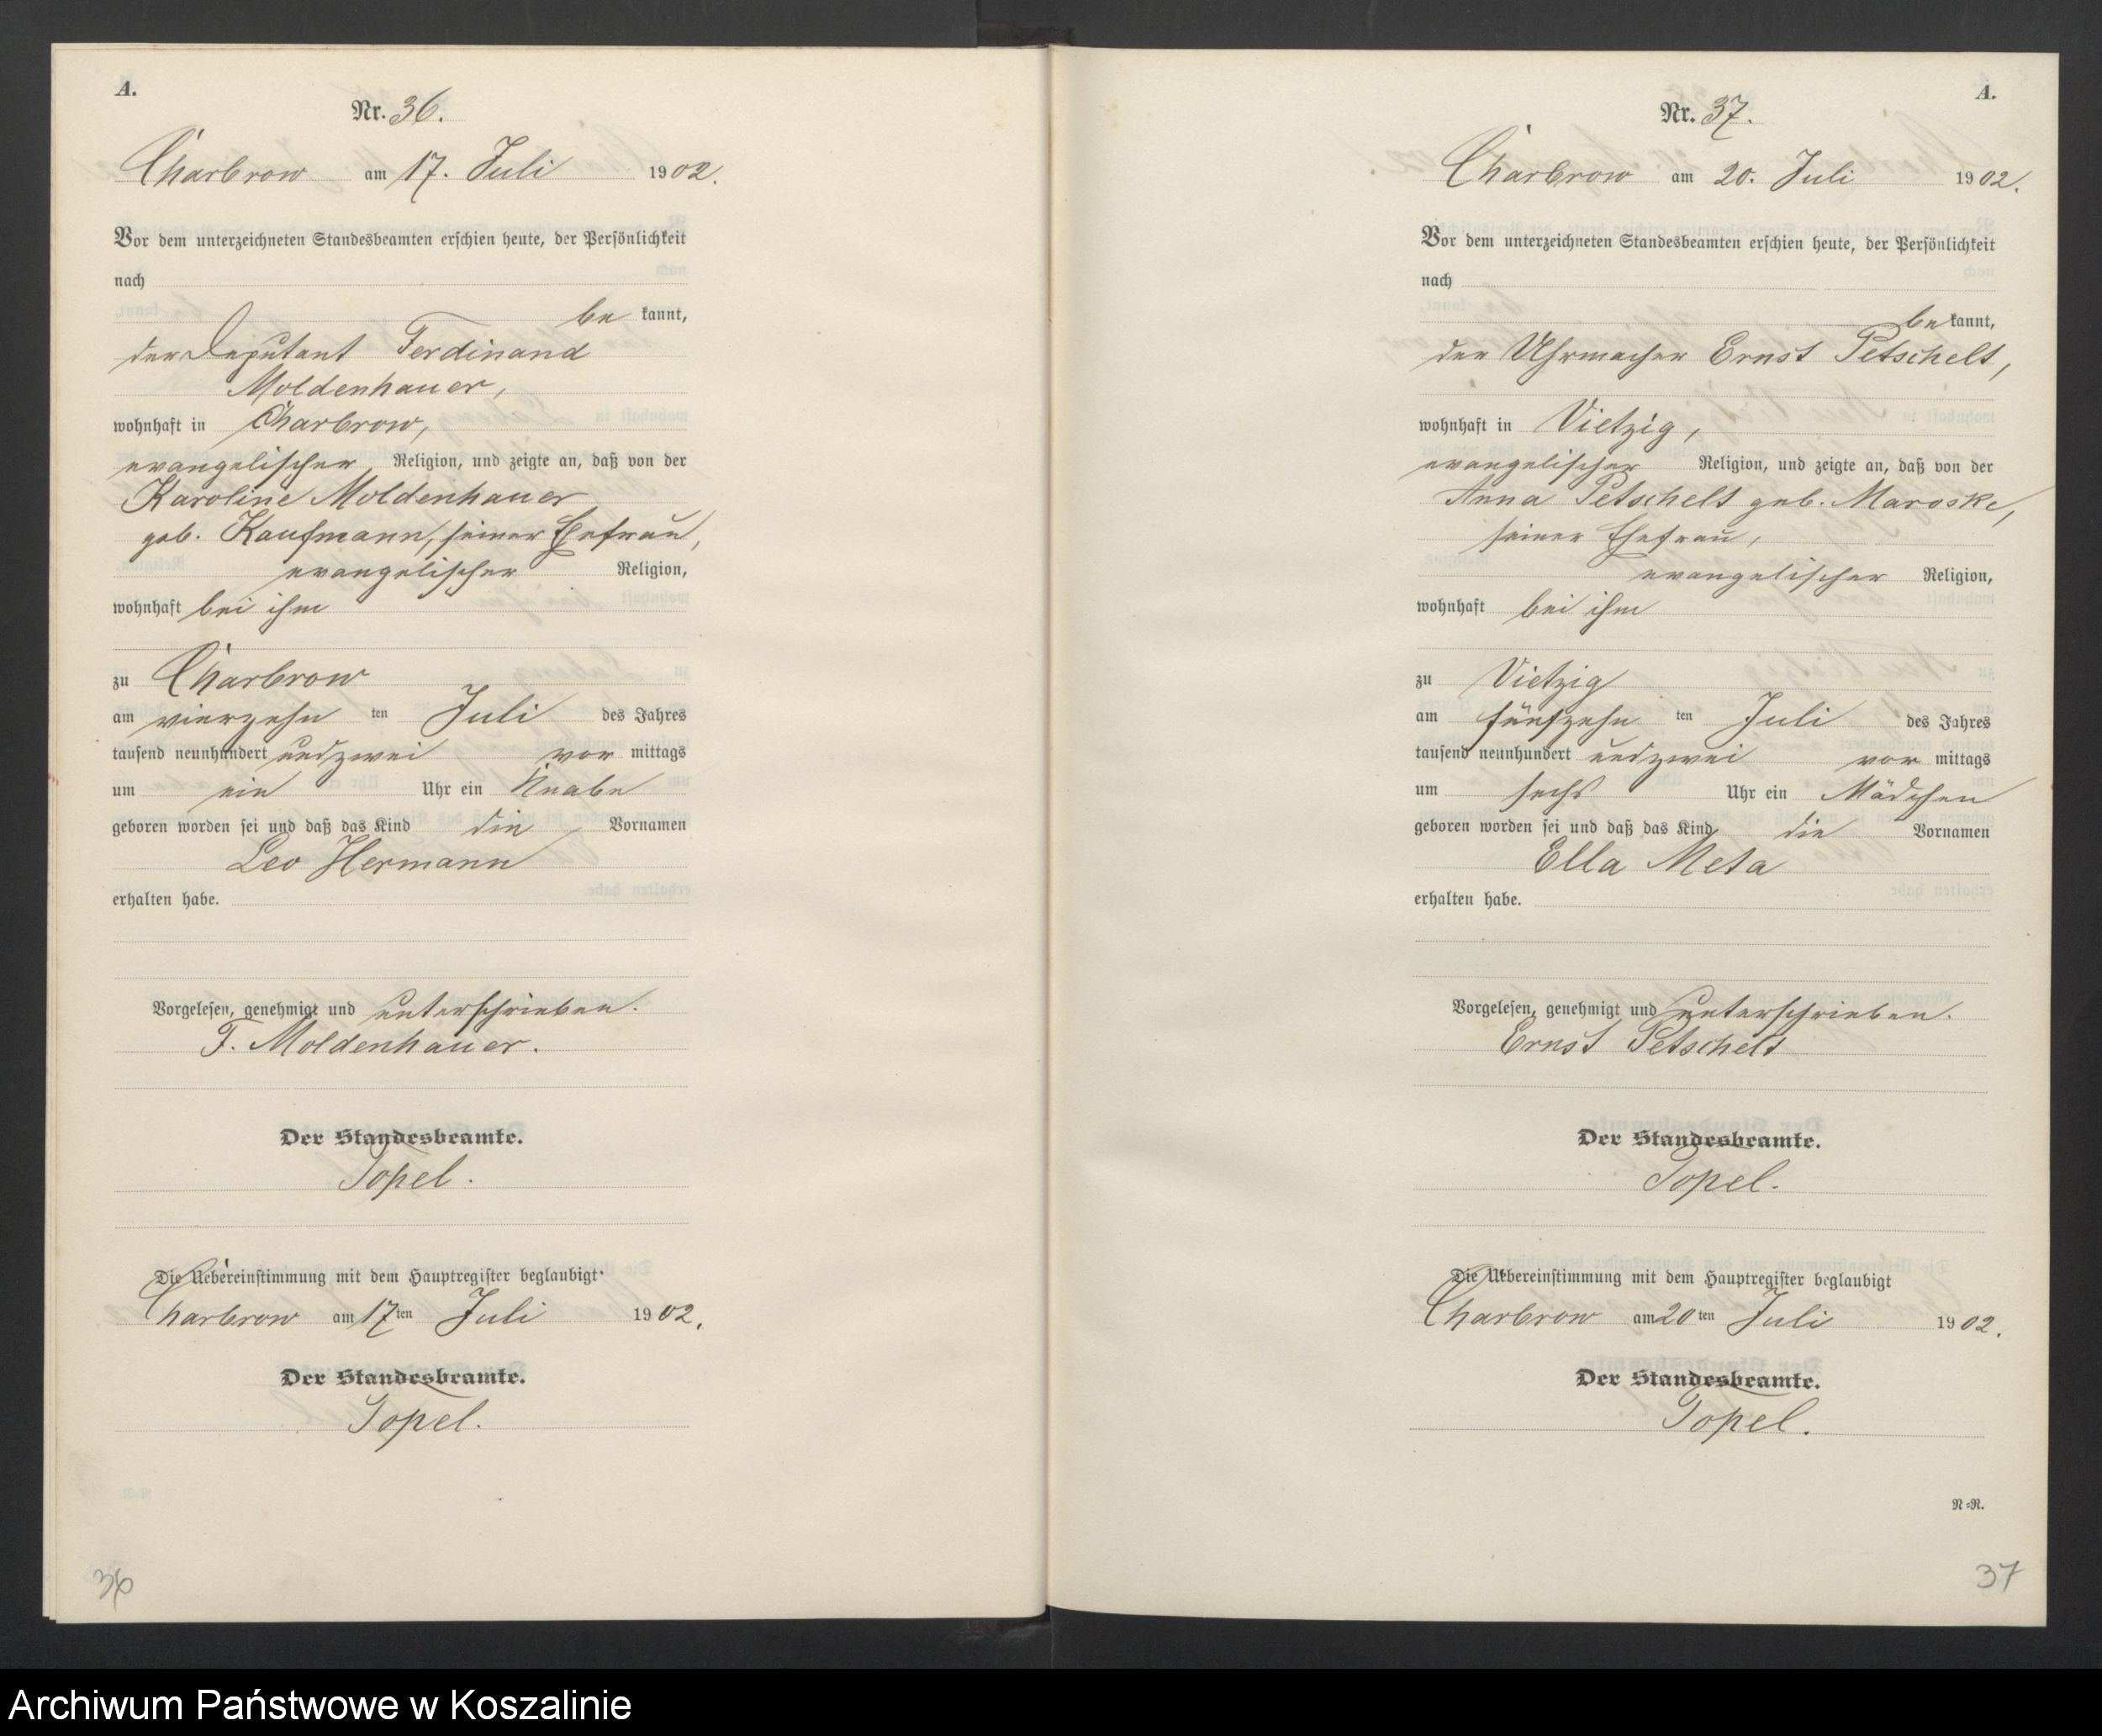 A.
Nr. 36.
Charbrow am 17. Juli 1902.
Vor dem unterzeichneten Standesbeamten erschien heute, der Persönlichkeit
nach
be kannt,
der Deputant Ferdinand
Moldenhauer,
wohnhaft in Charbrow,
evangelischer Religion, und zeigte an, daß von der
Karoline Moldenhauer
geb. Kaufmann, seiner Ehefrau,
evangelischer Religion,
wohnhaft bei ihm
zu Charbrow
am vierzehn ten Juli des Jahres
tausend neunhundert und zwei vor mittags
um ein Uhr ein Knabe
geboren worden sei und daß das Kind die Vornamen
Leo Hermann
erhalten habe.
Vorgelesen, genehmigt und unterschrieben.
F. Moldenhauer.
Der Standesbeamte.
Topel.
Die Uebereinstimmung mit dem Hauptregister beglaubigt
Charbrow am 17ten Juli 1902.
Der Standesbeamte.
Topel.
36
A.
Nr. 37.
Charbrow am 20. Juli 1902.
Vor dem unterzeichneten Standesbeamten erschien heute, der Persönlichkeit
nach
be kannt,
der Uhrmacher Ernst Petschelt,
wohnhaft in Vietzig,
evangelischer Religion, und zeigte an, daß von der
Anna Petschelt geb. Maroske,
seiner Ehefrau,
evangelischer Religion,
wohnhaft bei ihm
zu Vietzig
am fünfzehn ten Juli des Jahres
tausend neunhundert und zwei vor mittags
um sechs Uhr ein Mädchen
geboren worden sei und daß das Kind die Vornamen
Ella Meta
erhalten habe.
Vorgelesen, genehmigt und unterschrieben.
Ernst Petschelt
Der Standesbeamte.
Topel.
Die Uebereinstimmung mit dem Hauptregister beglaubigt
Charbrow am 20ten Juli 1902.
Der Standesbeamte.
Topel.
N=R.
37
Archiwum Państwowe w Koszalinie